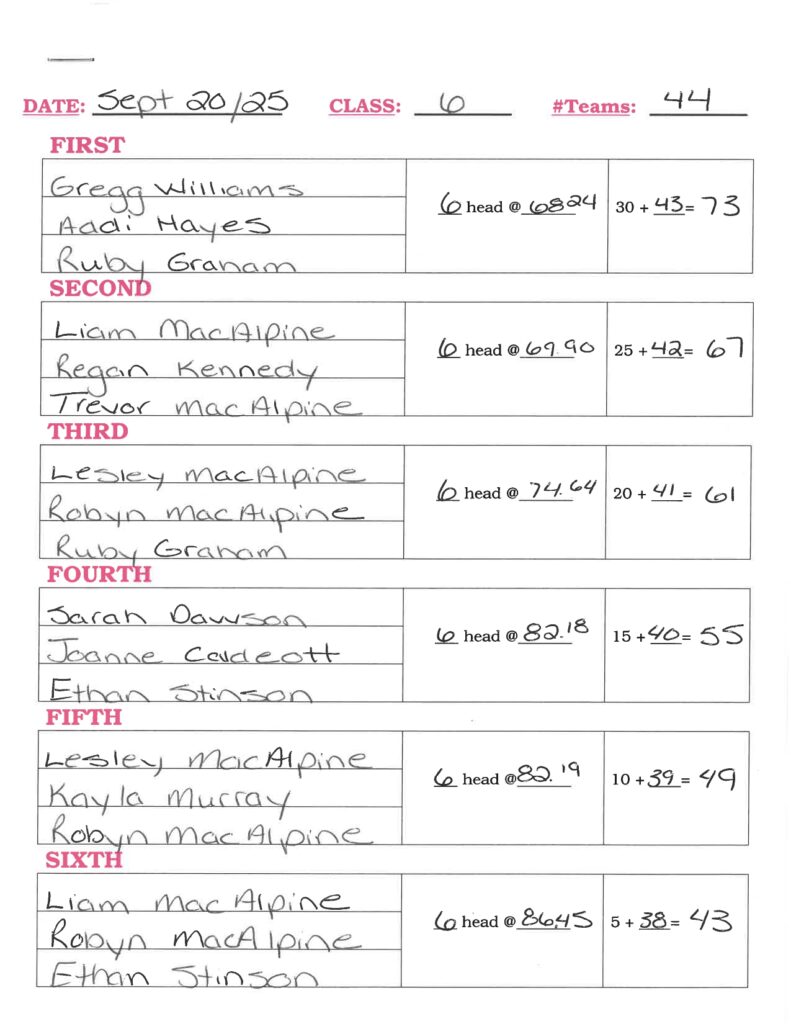 DATE: Sept 20/25 CLASS: 6 #Teams: 44
FIRST
Gregg Williams
Aadi Hayes
Ruby Graham
6 head @ 6824 30 + 43 = 73
SECOND
Liam MacAlpine
Regan Kennedy
Trevor MacAlpine
6 head @ 69.90 25 + 42 = 67
THIRD
Lesley MacAlpine
Robyn MacAlpine
Ruby Graham
6 head @ 74.64 20 + 41 = 61
FOURTH
Sarah Dawson
Joanne
Ethan Stinson
6 head @ 82.18 15 + 40 = 55
FIFTH
Lesley MacAlpine
Kayla Murray
Robyn MacAlpine
6 head @ 82.19 10 + 39 = 49
SIXTH
Liam MacAlpine
Robyn MacAlpine
Ethan Stinson
6 head @ 8645 5 + 38 = 43